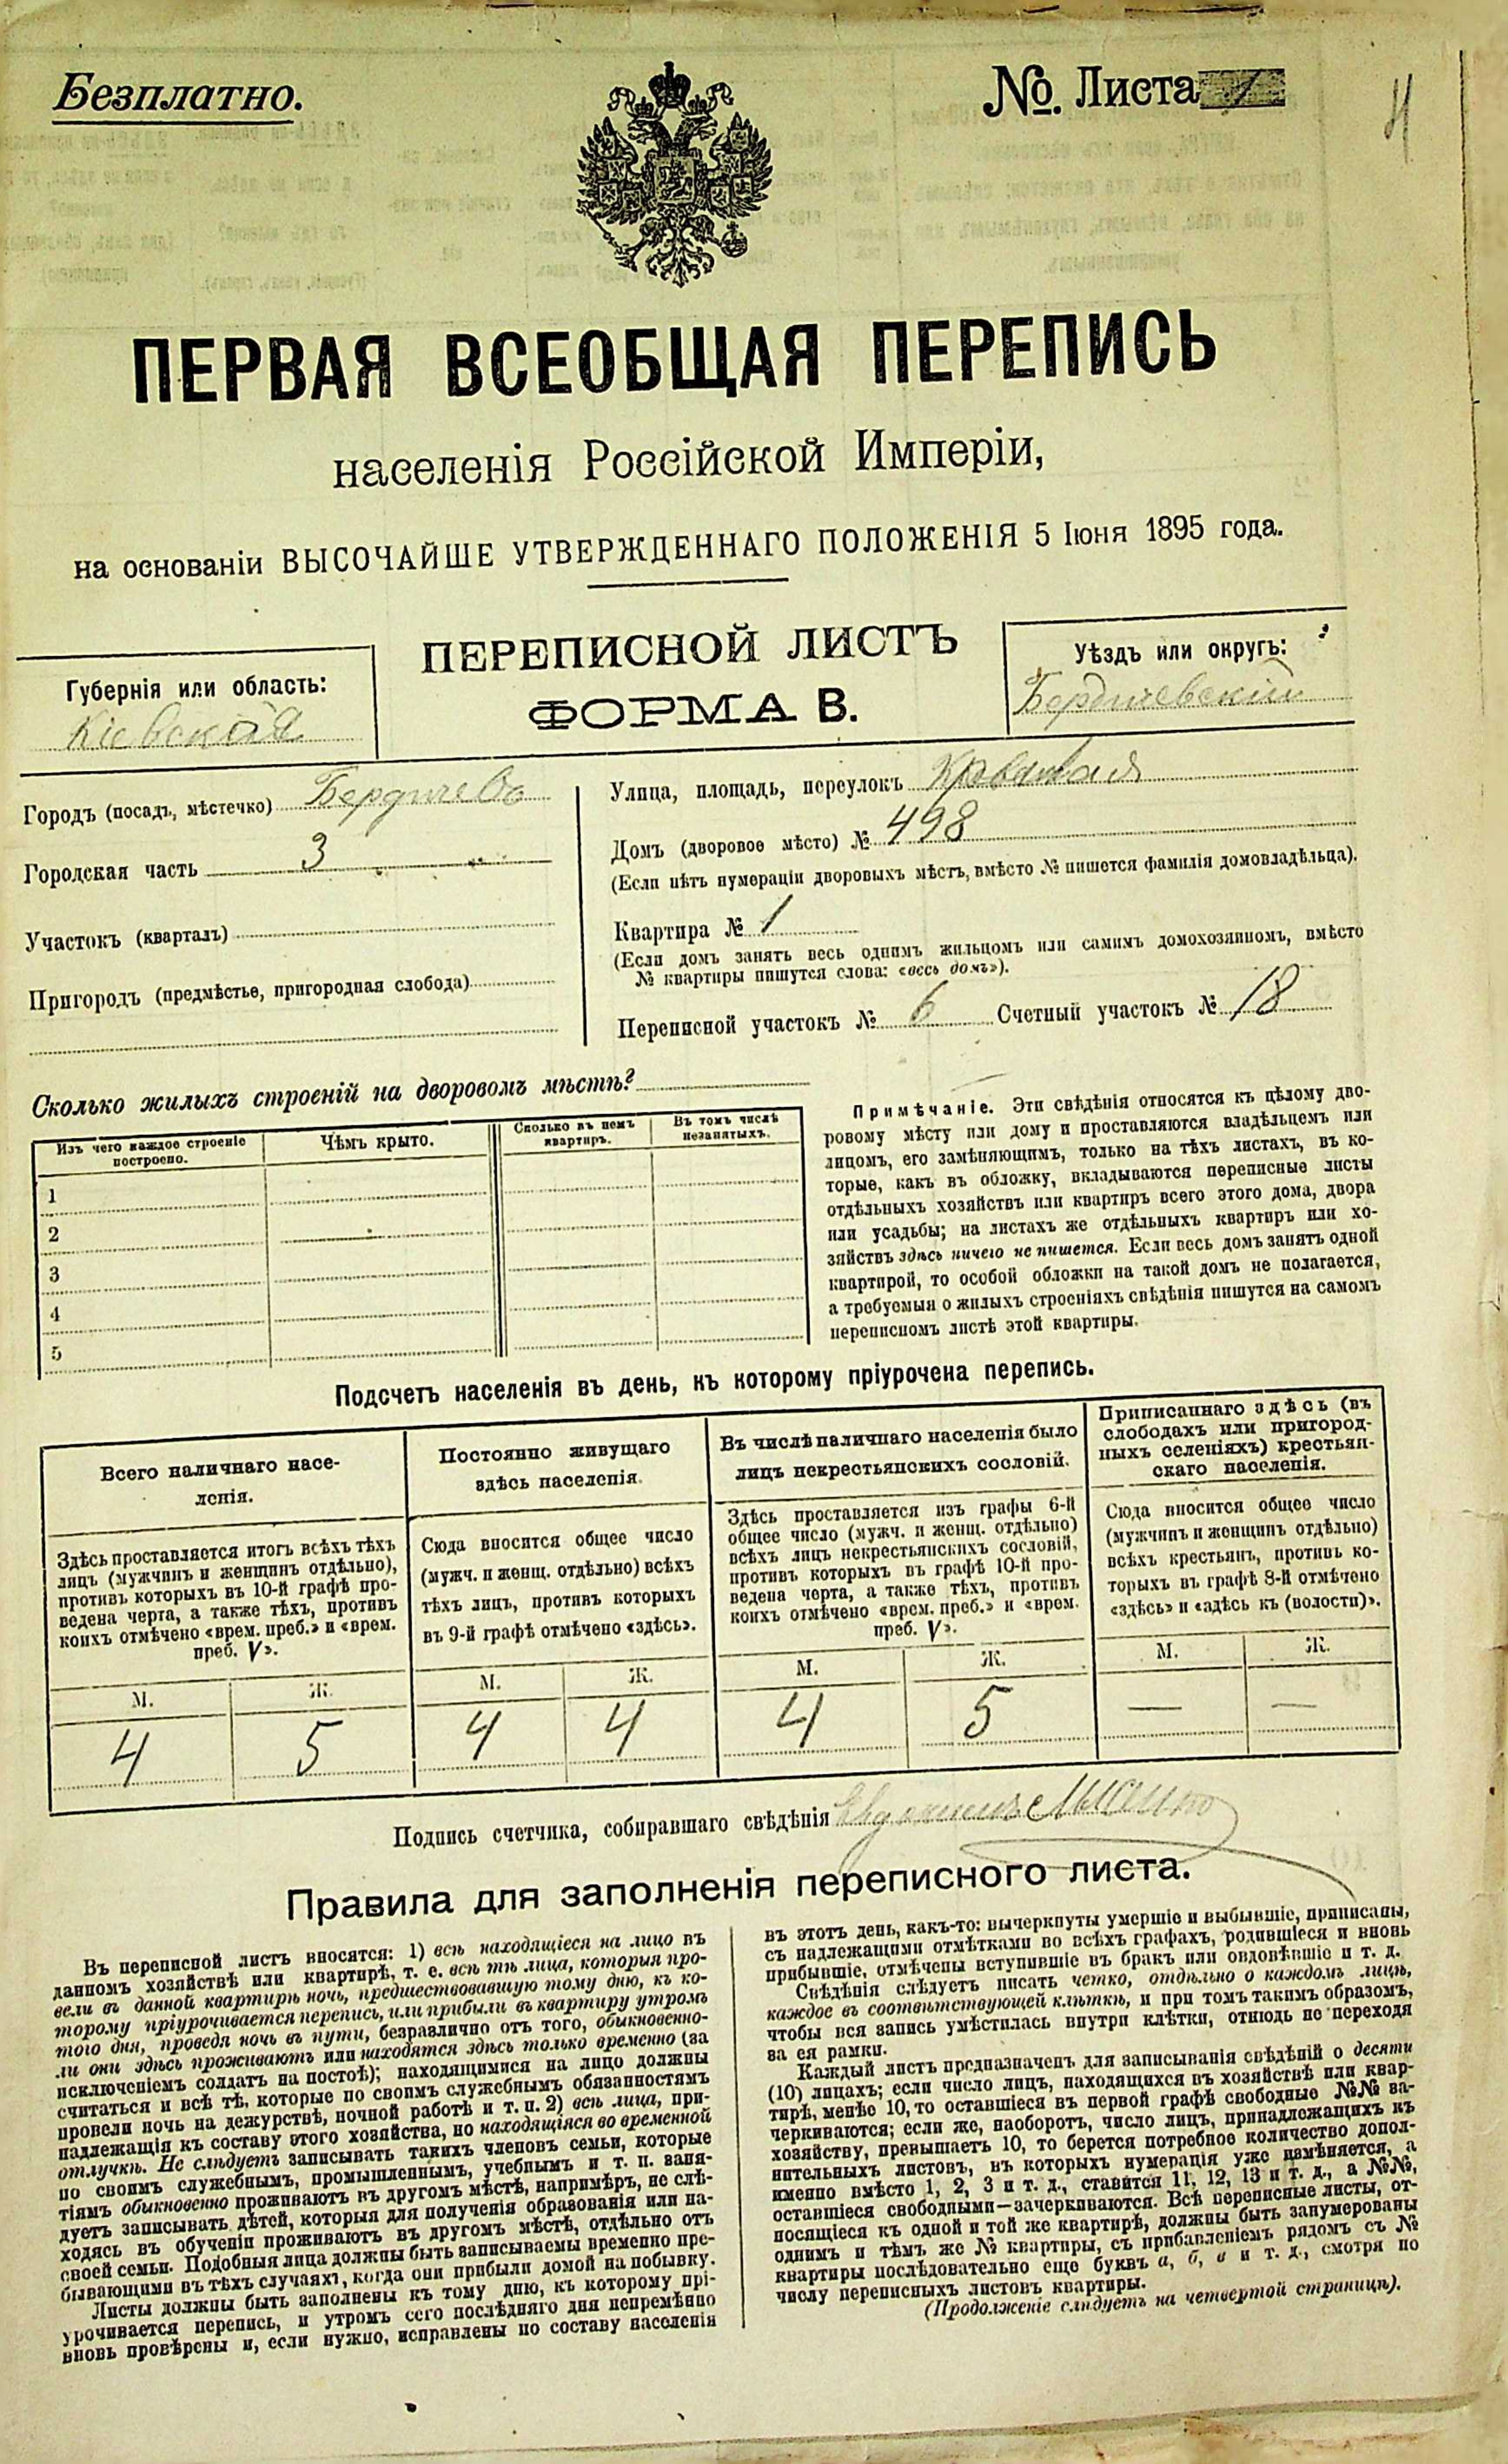 Безплатно.
№. Листа
ПЕРВАЯ ВСЕОБЩАЯ ПЕРЕПИСЬ
населенія Россійской Имперіи,
на основаніи ВЫСОЧАЙШЕ УТВЕРЖДЕННАГО ПОЛОЖЕНІЯ 5 Іюня 1895 года.
ПЕРЕПИСНОЙ ЛИСТЪ
ФОРМА В.
Губернія или область:
Кіевская
Уѣздъ или округъ:
Бердичевскій
Городъ (посадъ, мѣстечко) Бердичевъ
Городская часть 3
Участокъ (кварталъ)
Пригородъ (предмѣстье, пригородная слобода)
Улица, площадь, переулокъ
Домъ (дворовое мѣсто) № 498
(Если нѣтъ нумераціи дворовыхъ мѣстъ, вмѣсто № пишется фамилія домовладѣльца).
Квартира № 1
(Если домъ занятъ весь однимъ жильцомъ или самимъ домохозяиномъ, вмѣсто
№ квартиры пишутся слова: «весь домъ»).
Переписной участокъ № 6 Счетный участокъ № 18
Сколько жилыхъ строеній на дворовомъ мѣстѣ?
Изъ чего каждое строеніе
построено.
Чѣмъ крыто.
Сколько въ немъ
квартиръ.
Въ томъ числѣ
незанятыхъ.
1
2
3
4
5
Примѣчаніе. Эти свѣдѣнія относятся къ цѣлому дво-
ровому мѣсту или дому и проставляются владѣльцемъ или
лицомъ, его замѣняющимъ, только на тѣхъ листахъ, въ ко-
торые, какъ въ обложку, вкладываются переписные листы
отдѣльныхъ хозяйствъ или квартиръ всего этого дома, двора
или усадьбы; на листахъ же отдѣльныхъ квартиръ или хо-
зяйствъ здѣсь ничего не пишется. Если весь домъ занятъ одной
квартирой, то особой обложки на такой домъ не полагается,
а требуемыя о жилыхъ строеніяхъ свѣдѣнія пишутся на самомъ
переписномъ листѣ этой квартиры.
Подсчетъ населенія въ день, къ которому пріурочена перепись.
Всего наличнаго насе-
ленія.
Здѣсь проставляется итогъ всѣхъ тѣхъ
лицъ (мужчинъ и женщинъ отдѣльно),
противъ которыхъ въ 10-й графѣ про-
ведена черта, а также тѣхъ, противъ
коихъ отмѣчено «врем. преб.» и «врем.
преб. V».
М. Ж.
4 5
Постоянно живущаго
здѣсь населенія.
Сюда вносится общее число
(мужч. и женщ. отдѣльно) всѣхъ
тѣхъ лицъ, противъ которыхъ
въ 9-й графѣ отмѣчено «здѣсь».
М. Ж.
4 4
Въ числѣ наличнаго населенія было
лицъ некрестьянскихъ сословій.
Здѣсь проставляется изъ графы 6-й
общее число (мужч. и женщ. отдѣльно)
всѣхъ лицъ некрестьянскихъ сословій,
противъ которыхъ въ графѣ 10-й про-
ведена черта, а также тѣхъ, противъ
коихъ отмѣчено «врем. преб.» и «врем.
преб. V».
М. Ж.
4 5
Приписаннаго здѣсь (въ
слободахъ или пригород-
ныхъ селеніяхъ) крестьян-
скаго населенія.
Сюда вносится общее число
(мужчинъ и женщинъ отдѣльно)
всѣхъ крестьянъ, противъ ко-
торыхъ въ графѣ 8-й отмѣчено
«здѣсь» и «здѣсь къ (волости)».
М. Ж.
— —
Подпись счетчика, собиравшаго свѣдѣнія
Правила для заполненія переписного листа.
Въ переписной листъ вносятся: 1) всѣ находящіеся на лицо въ
данномъ хозяйствѣ или квартирѣ, т. е. всѣ тѣ лица, которыя про-
вели въ данной квартирѣ ночь, предшествовавшую тому дню, къ ко-
торому пріурочивается перепись, или прибыли въ квартиру утромъ
того дня, проведя ночь въ пути, безразлично отъ того, обыкновенно-
ли они здѣсь проживаютъ или находятся здѣсь только временно (за
исключеніемъ солдатъ на постоѣ); находящимися на лицо должны
считаться и всѣ тѣ, которые по своимъ служебнымъ обязанностямъ
провели ночь на дежурствѣ, ночной работѣ и т. п. 2) всѣ лица, при-
надлежащія къ составу этого хозяйства, но находящіяся во временной
отлучкѣ. Не слѣдуетъ записывать такихъ членовъ семьи, которые
по своимъ служебнымъ, промышленнымъ, учебнымъ и т. п. заня-
тіямъ обыкновенно проживаютъ въ другомъ мѣстѣ, напримѣръ, не слѣ-
дуетъ записывать дѣтей, которыя для полученія образованія или на-
ходясь въ обученіи проживаютъ въ другомъ мѣстѣ, отдѣльно отъ
своей семьи. Подобныя лица должны быть записываемы временно пре-
бывающими въ тѣхъ случаяхъ, когда они прибыли домой на побывку.
Листы должны быть заполнены къ тому дню, къ которому прі-
урочивается перепись, и утромъ сего послѣдняго дня непремѣнно
вновь провѣрены и, если нужно, исправлены по составу населенія
въ этотъ день, какъ-то: вычеркнуты умершіе и выбывшіе, приписаны,
съ надлежащими отмѣтками во всѣхъ графахъ, родившіеся и вновь
прибывшіе, отмѣчены вступившіе въ бракъ или овдовѣвшіе и т. д.
Свѣдѣнія слѣдуетъ писать четко, отдѣльно о каждомъ лицѣ,
каждое въ соотвѣтствующей клѣткѣ, и при томъ такимъ образомъ,
чтобы вся запись умѣстилась внутри клѣтки, отнюдь не переходя
за ея рамки.
Каждый листъ предназначенъ для записыванія свѣдѣній о десяти
(10) лицахъ; если число лицъ, находящихся въ хозяйствѣ или квар-
тирѣ, менѣе 10, то оставшіеся въ первой графѣ свободные №№ за-
черкиваются; если же, наоборотъ, число лицъ, принадлежащихъ къ
хозяйству, превышаетъ 10, то берется потребное количество допол-
нительныхъ листовъ, въ которыхъ нумерація уже измѣняется, а
именно вмѣсто 1, 2, 3 и т. д., ставится 11, 12, 13 и т. д., а №№,
оставшіеся свободными—зачеркиваются. Всѣ переписные листы, от-
носящіеся къ одной и той же квартирѣ, должны быть занумерованы
однимъ и тѣмъ же № квартиры, съ прибавленіемъ рядомъ съ №
квартиры послѣдовательно еще буквъ а, б, в и т. д., смотря по
числу переписныхъ листовъ квартиры.
(Продолженіе слѣдуетъ на четвертой страницѣ).